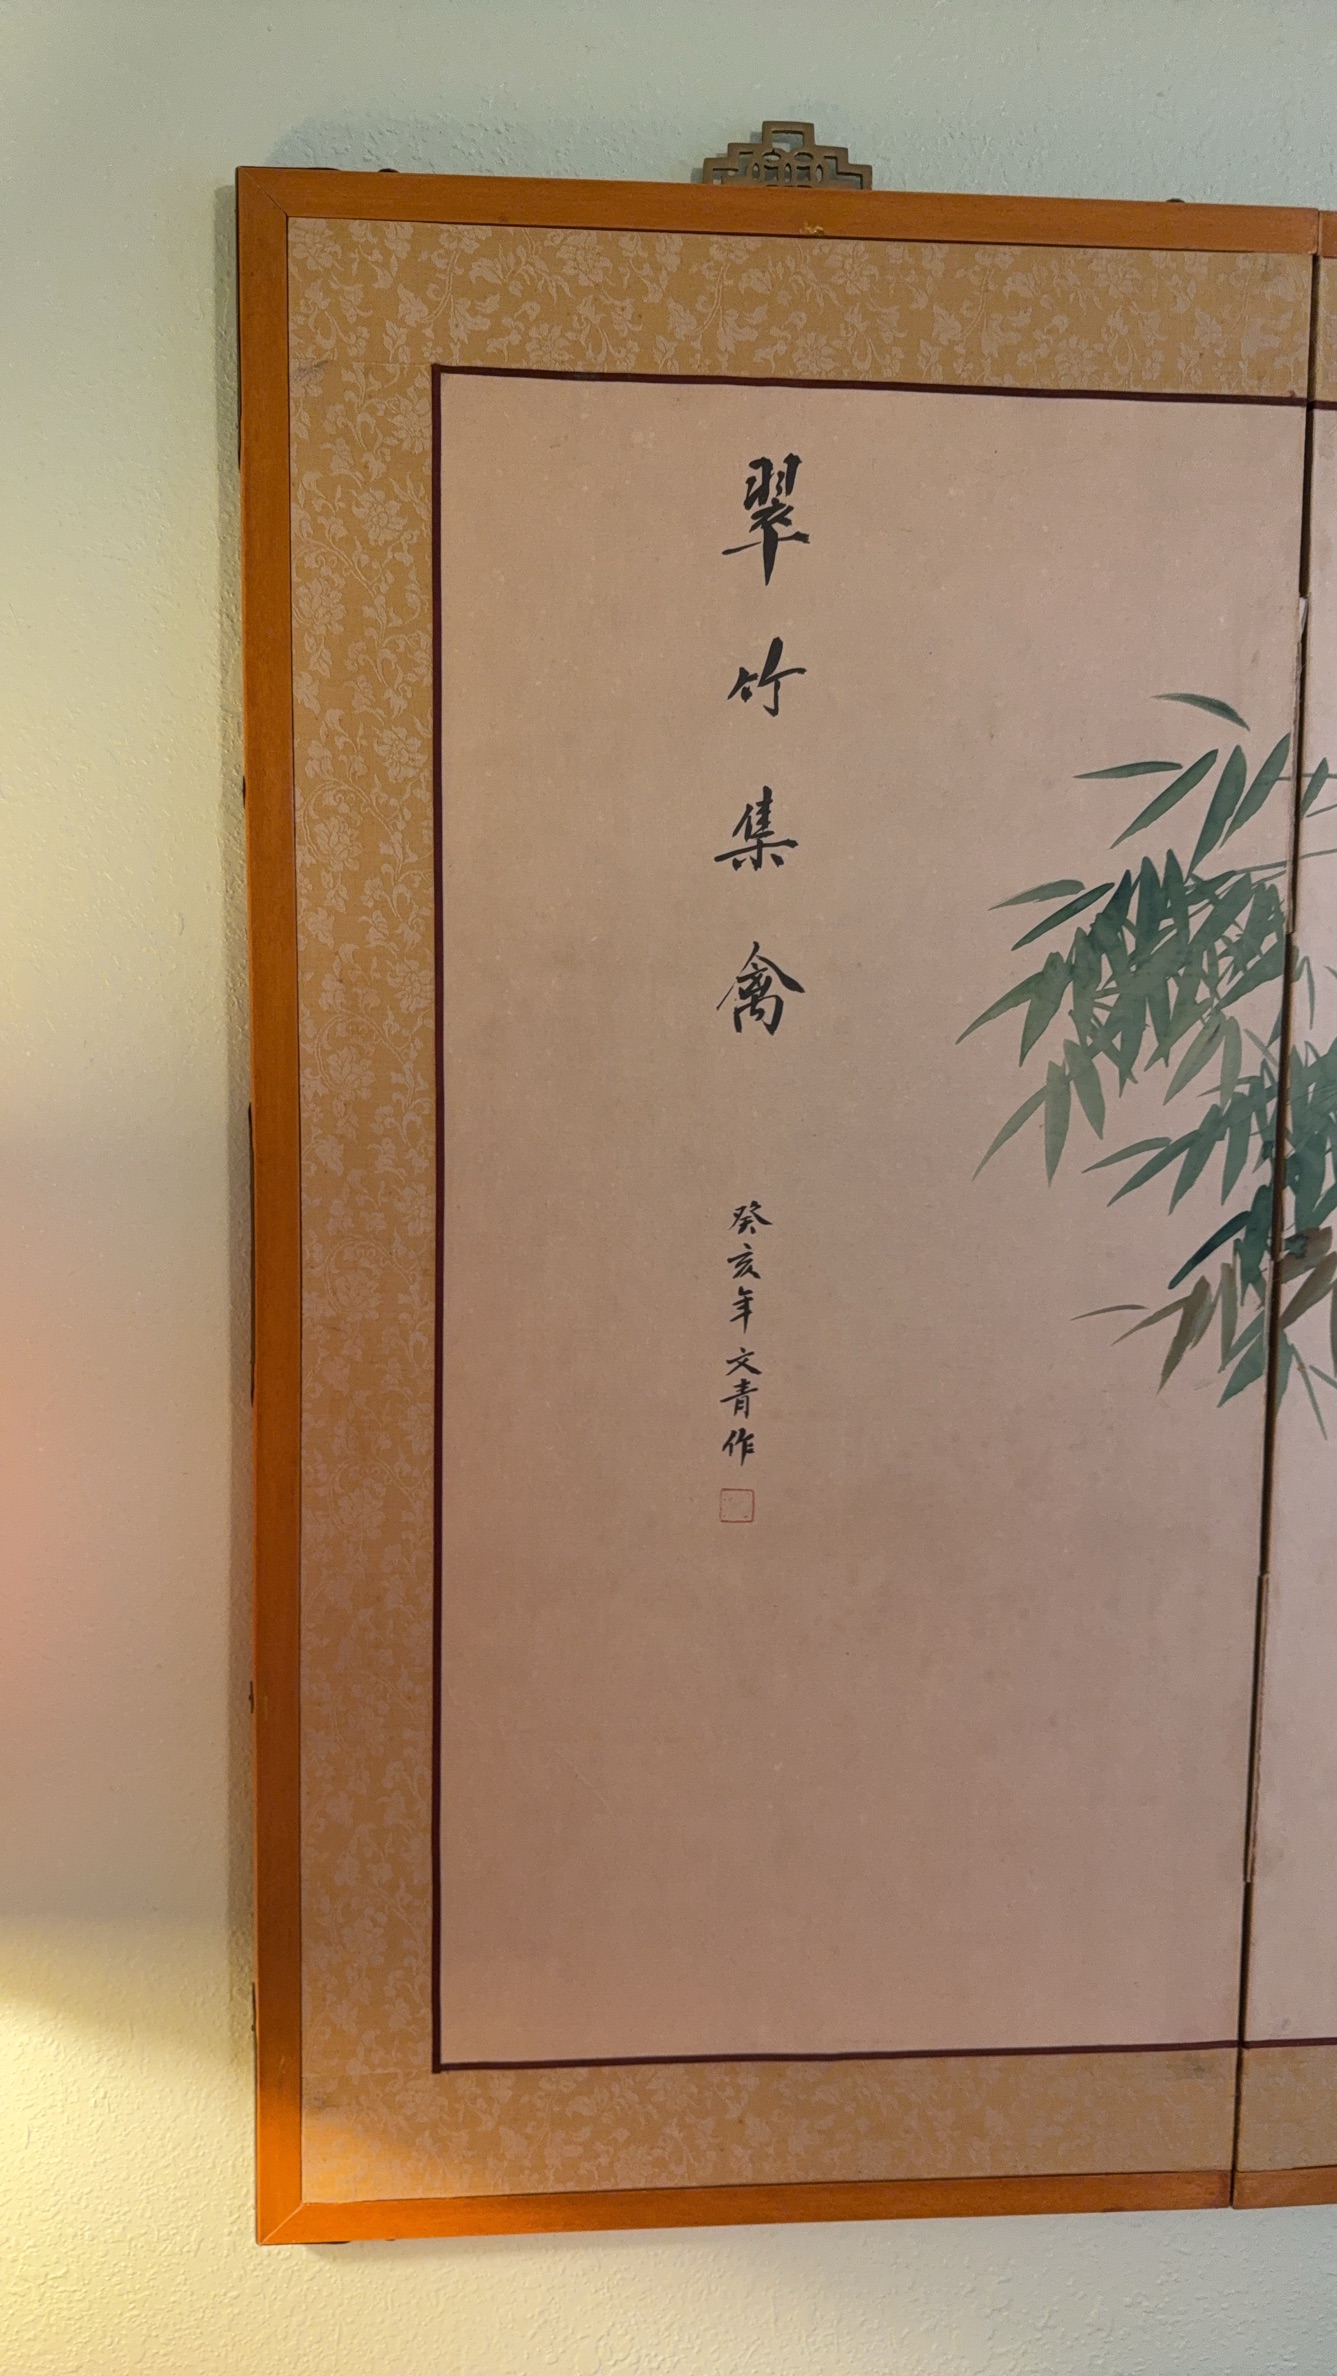 翠竹集禽
癸亥年文青作